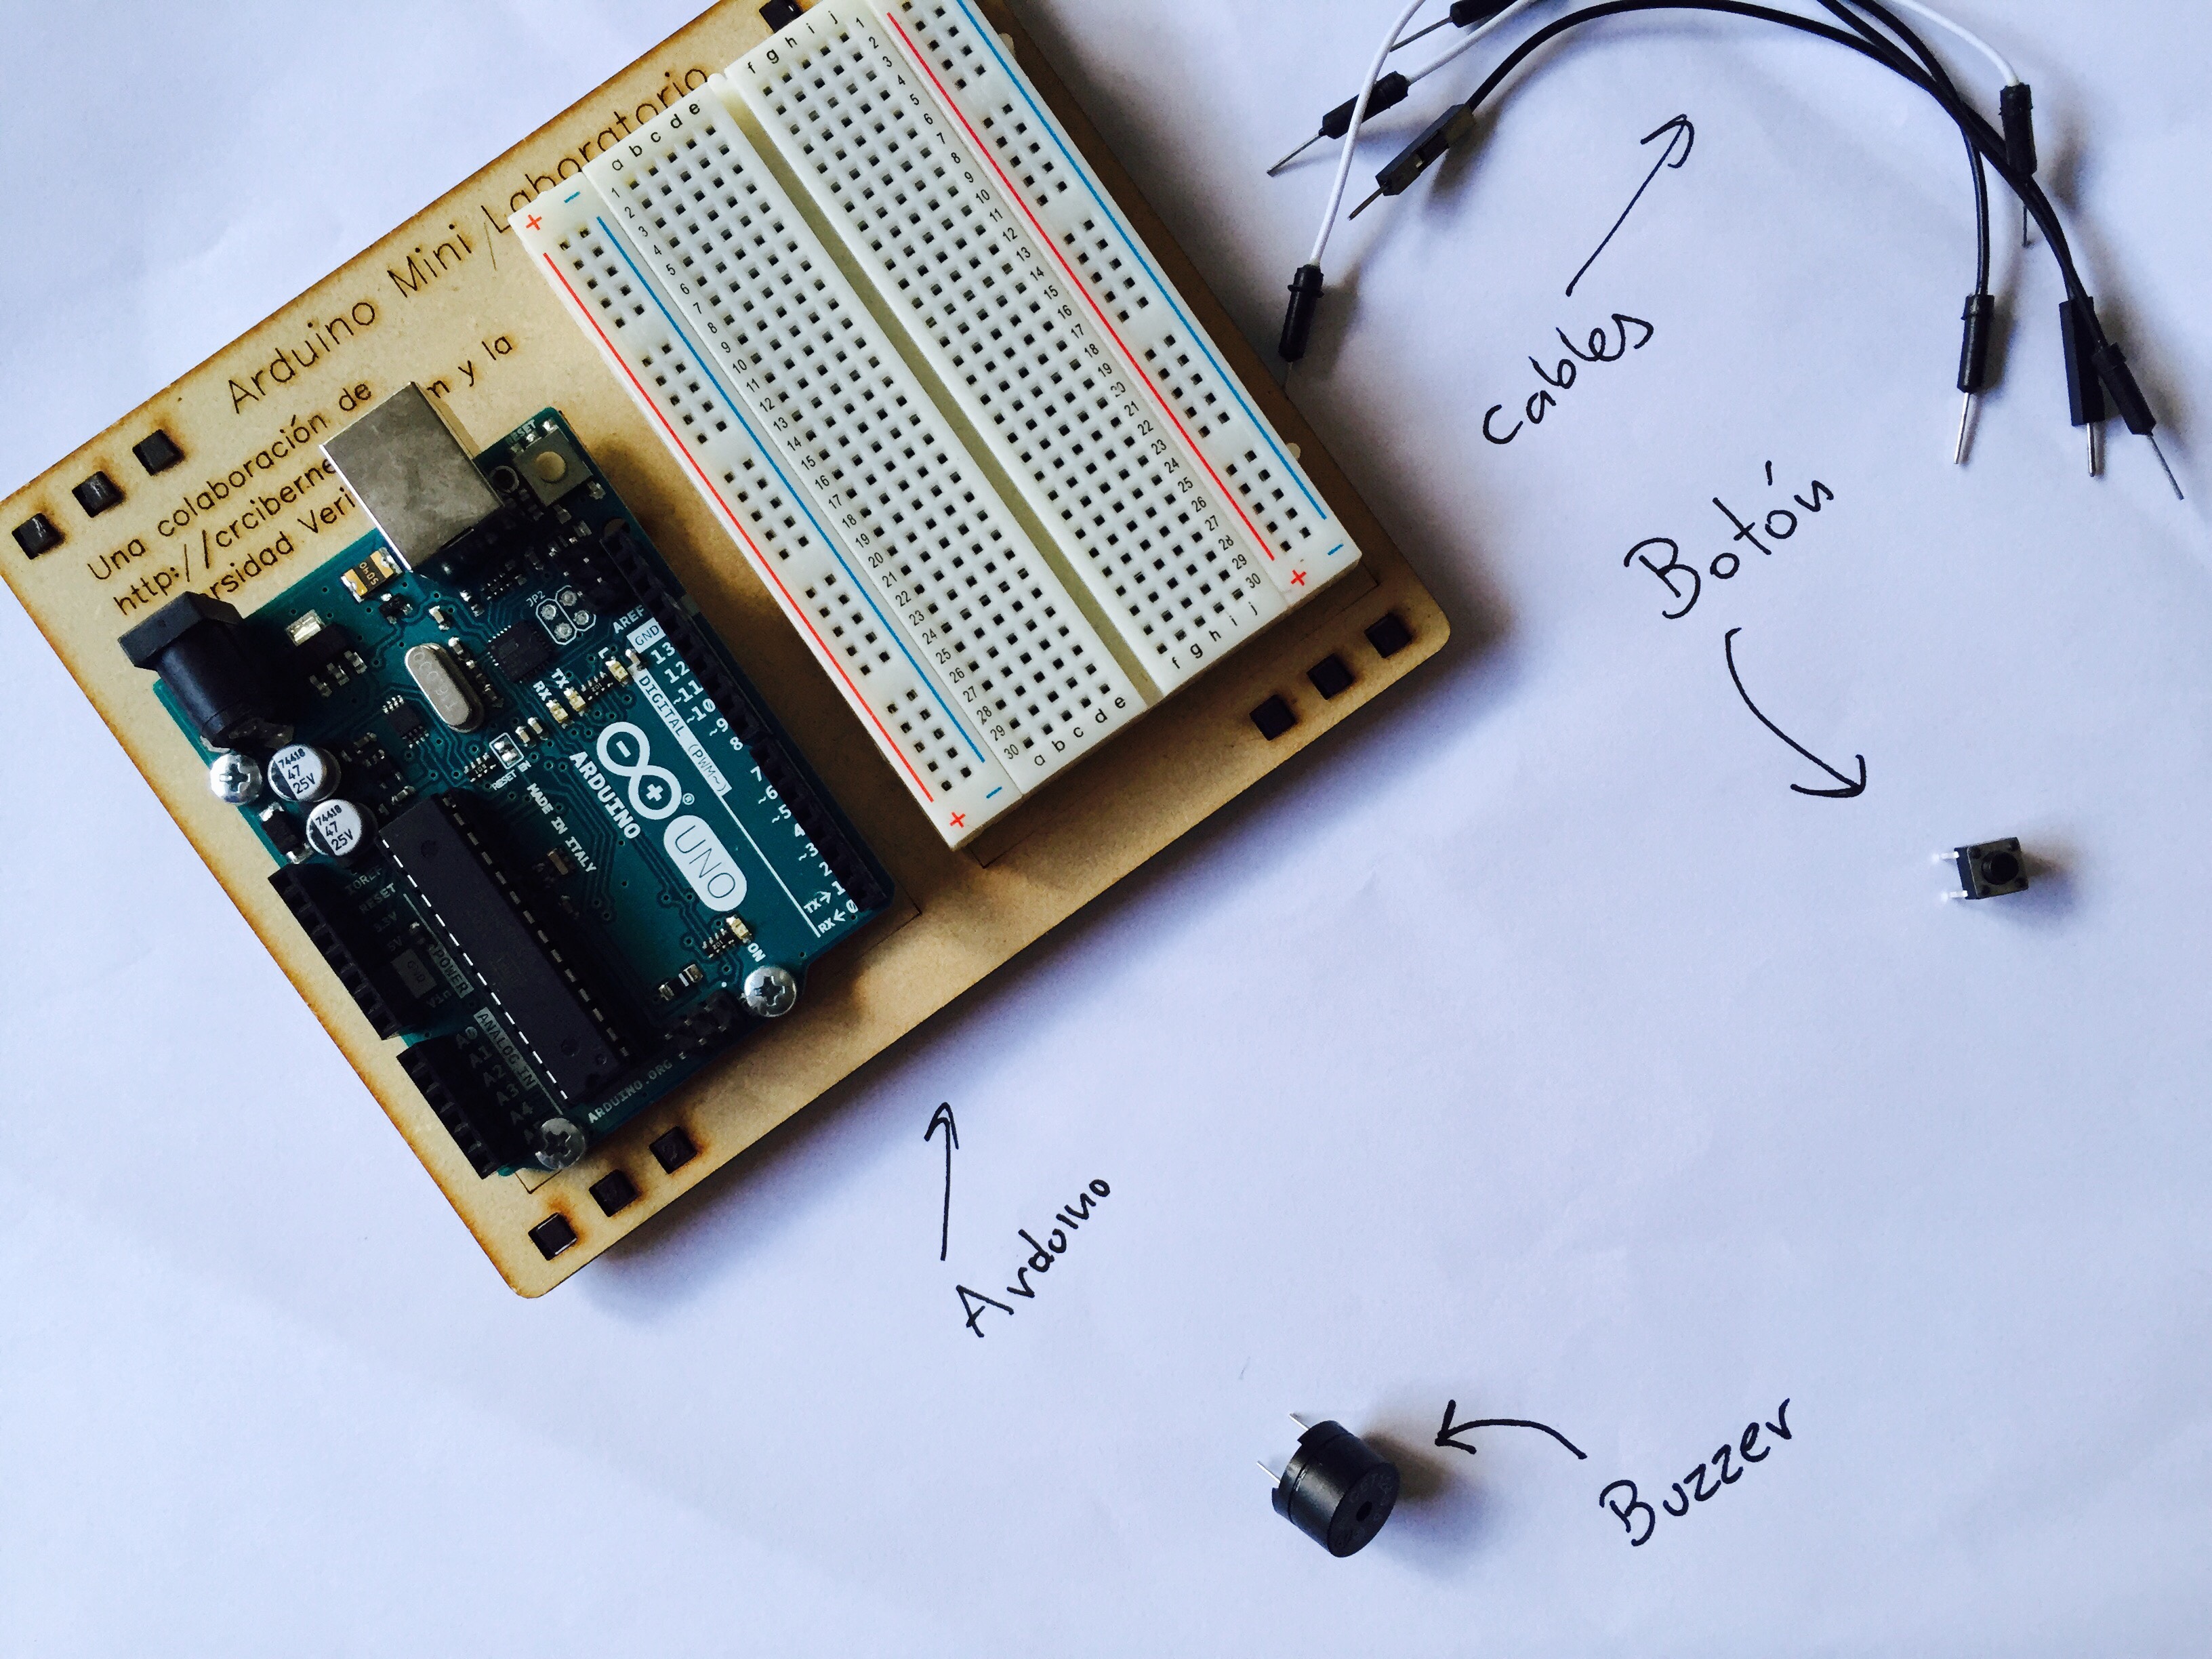 Arduino Mini Laboratorio
Una colaboración de
y la
http://crciberne
rsidad Veri
a b c d e
f g h i j
1
2
3
4
5
6
7
8
9
10
11
12
13
14
15
16
17
18
19
20
21
22
23
24
25
26
27
28
29
30
a b c d e
f g h i j
+ -
+ -
+ -
RESET
JP2
AREF
GND
13
12
~11
~10
~9
8
7
~6
~5
4
~3
2
TX→1
RX←0
DIGITAL (PWM~)
L
TX
RX
RESET EN
MADE IN ITALY
ARDUINO
UNO
ON
74418
47
25V
74418
47
25V
RESET
5V
GND
POWER
ANALOG IN
A0
A1
A2
A3
A4
ARDUINO.ORG
cables
Botón
Arduino
Buzzer